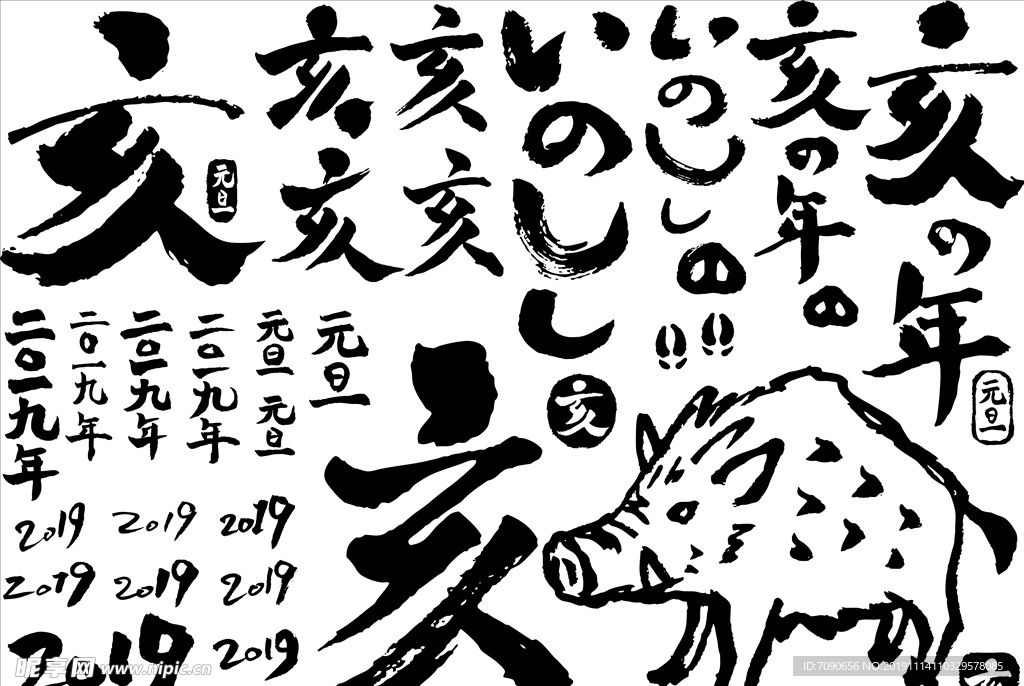 亥
元旦
亥
亥
亥
亥
いのしし
いのしし
亥の年
亥の年
元旦
二〇一九年
二〇一九年
二〇一九年
二〇一九年
元旦
元旦
元旦
亥
亥
2019
2019
2019
2019
2019
2019
2019
2019
亥
昵享网 www.nipic.cn
ID:7090656 NO:20191114110329578085